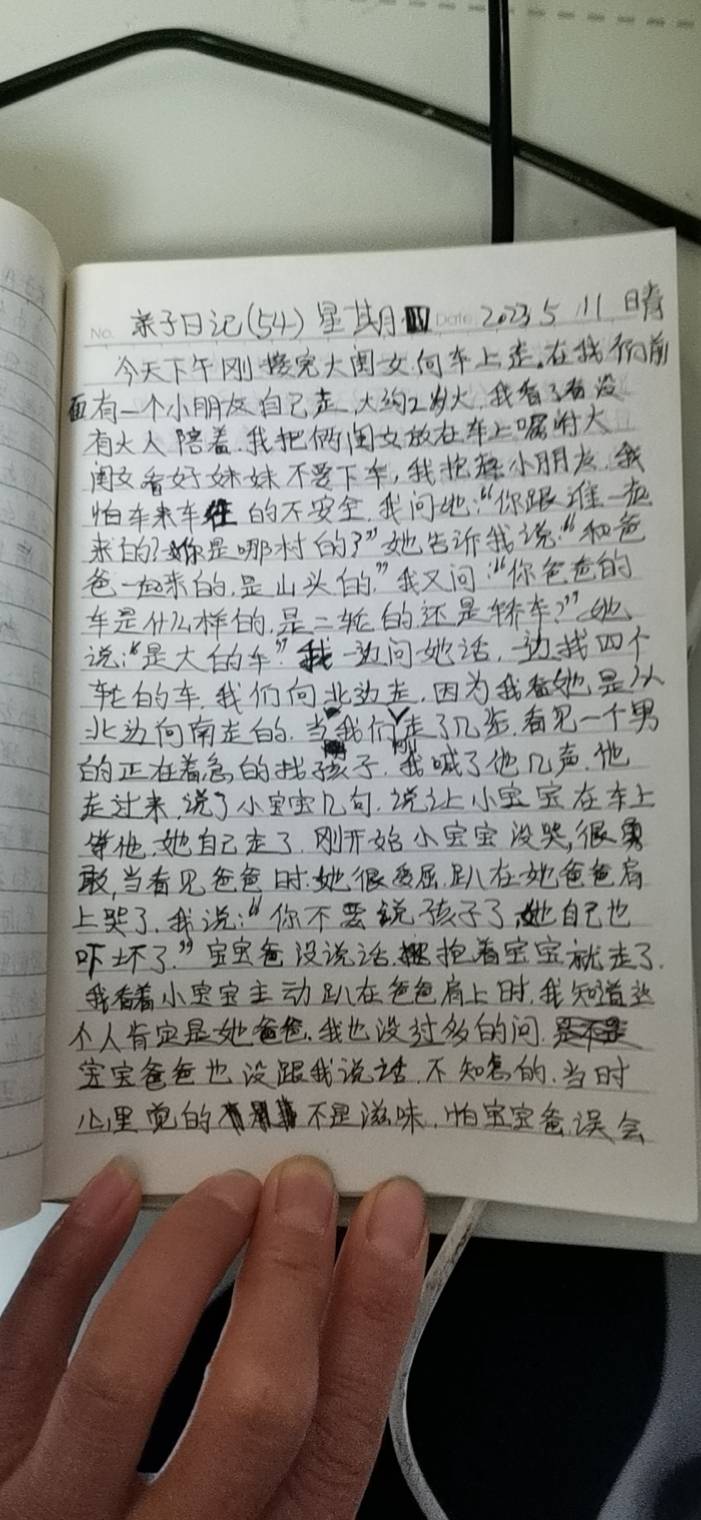 No. 亲子日记(54) 星期IV Date 2023 5 11 晴
今天下午刚接完大闺女向车上走。在我们前
面有一个小朋友自己走,大约2岁大,我看了看没
有大人陪着,我把俩闺女放在车上嘱咐大
闺女看好妹妹不要下车,我抱起小朋友,我
怕车来车往的不安全,我问她:“你跟谁一起
来的?你是哪村的?”她告诉我说:“和爸
爸一起来的,是山头的”我又问:“你爸爸的
车是什么样的,是三轮的还是轿车?”她
说:“是大的车”。我一边问她话,一边找四个
轮的车,我们向北边走,因为我看她是从
北边向南走的,当我们走了几步,看见一个男
的正在着急的找孩子,我喊了他几声,他
走过来,说了小宝宝几句,说让小宝宝在车上
等他,她自己走了,刚开始小宝宝没哭,很勇
敢,当看见爸爸时,她很委屈,趴在她爸爸肩
上哭了,我说:“你不要说孩子了,她自己也
吓坏了。”宝宝爸没说话,抱着宝宝就走了.
我看着小宝宝主动趴在爸爸肩上时,我知道这
个人肯定是她爸爸,我也没过多的问.
宝宝爸爸也没跟我说话,不知怎的,当时
心里觉的不是滋味,怕宝宝爸误会